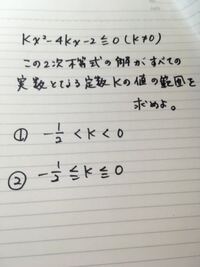 Kx²-4Kx-2≦0 (K≠0)
この2次不等式の解がすべての
実数となる定数Kの値の範囲を
求めよ。
① -1/2 < K < 0
② -1/2 ≦ K ≦ 0